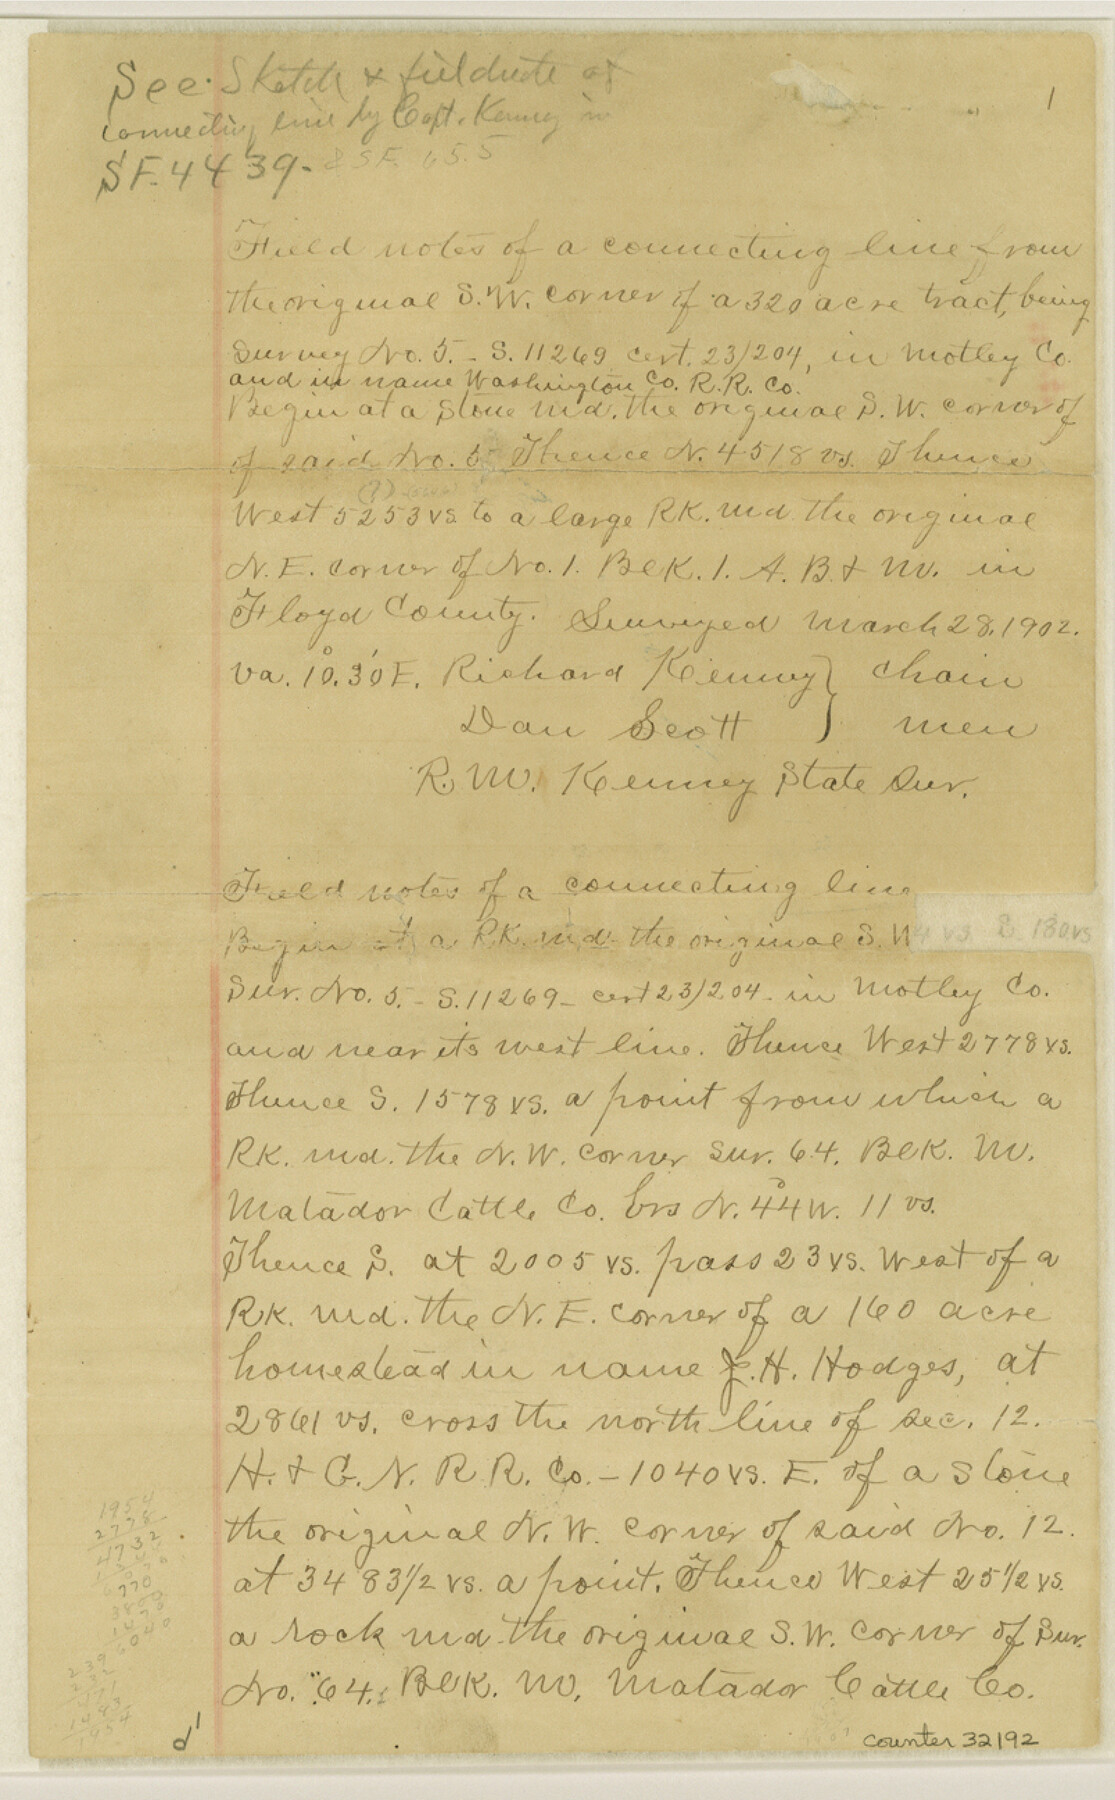 See Sketch & fieldnote of
connecting line by Capt. Kenney in
S F. 4 4 39 - & S F. 65.5
1
Field notes of a connecting line from
the original S. W. corner of a 320 acre tract, being
survey No. 5. - S. 11269 cert. 23/204, in Motley Co.
and in name Washington Co. R. R. Co.
Begin at a stone md. the original S. W. corner of
of said No. 5 Thence N. 4518 vs. Thence
(?)
West 5253 vs to a large RK. md the original
N. E. corner of No. 1. Blk. 1. A. B & M. in
Floyd County. Surveyed March 28. 1902.
Va. 10.° 30' E. Richard Kenney } chain
Dan Scott } men
R. M. Kenney State Sur.
Field notes of a connecting line
Begin at a RK. md. the original S. W
vs S 180 vs
Sur. No. 5. - S. 11269 - cert 23/204 - in Motley Co.
and near its west line. Thence West 2778 vs.
Thence S. 1578 vs. a point from which a
RK. md. the N. W. corner sur. 64. Blk. M.
Matador Cattle Co. brs N. 44° W. 11 vs.
Thence S. at 2005 vs. pass 23 vs. West of a
RK. md. the N. E. corner of a 160 acre
homestead in name J. H. Hodges, at
2861 vs. cross the north line of sec. 12.
H. & G. N. R R. Co. - 1040 vs. E. of a stone
the original N. W. corner of said No. 12.
at 3483 1/2 vs. a point. Thence West 25 1/2 vs.
a rock md the original S. W. corner of Sur.
No. 64. Blk. M. Matador Cattle Co.
1954
2778
4732
counter 32192